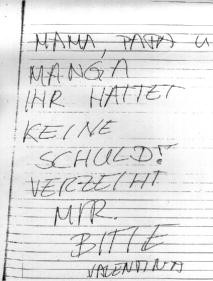 MAMA, PAPA U
MANGA
IHR HATTET
KEINE
SCHULD!
VERZEIHT
MIR.
BITTE
VALENTINA